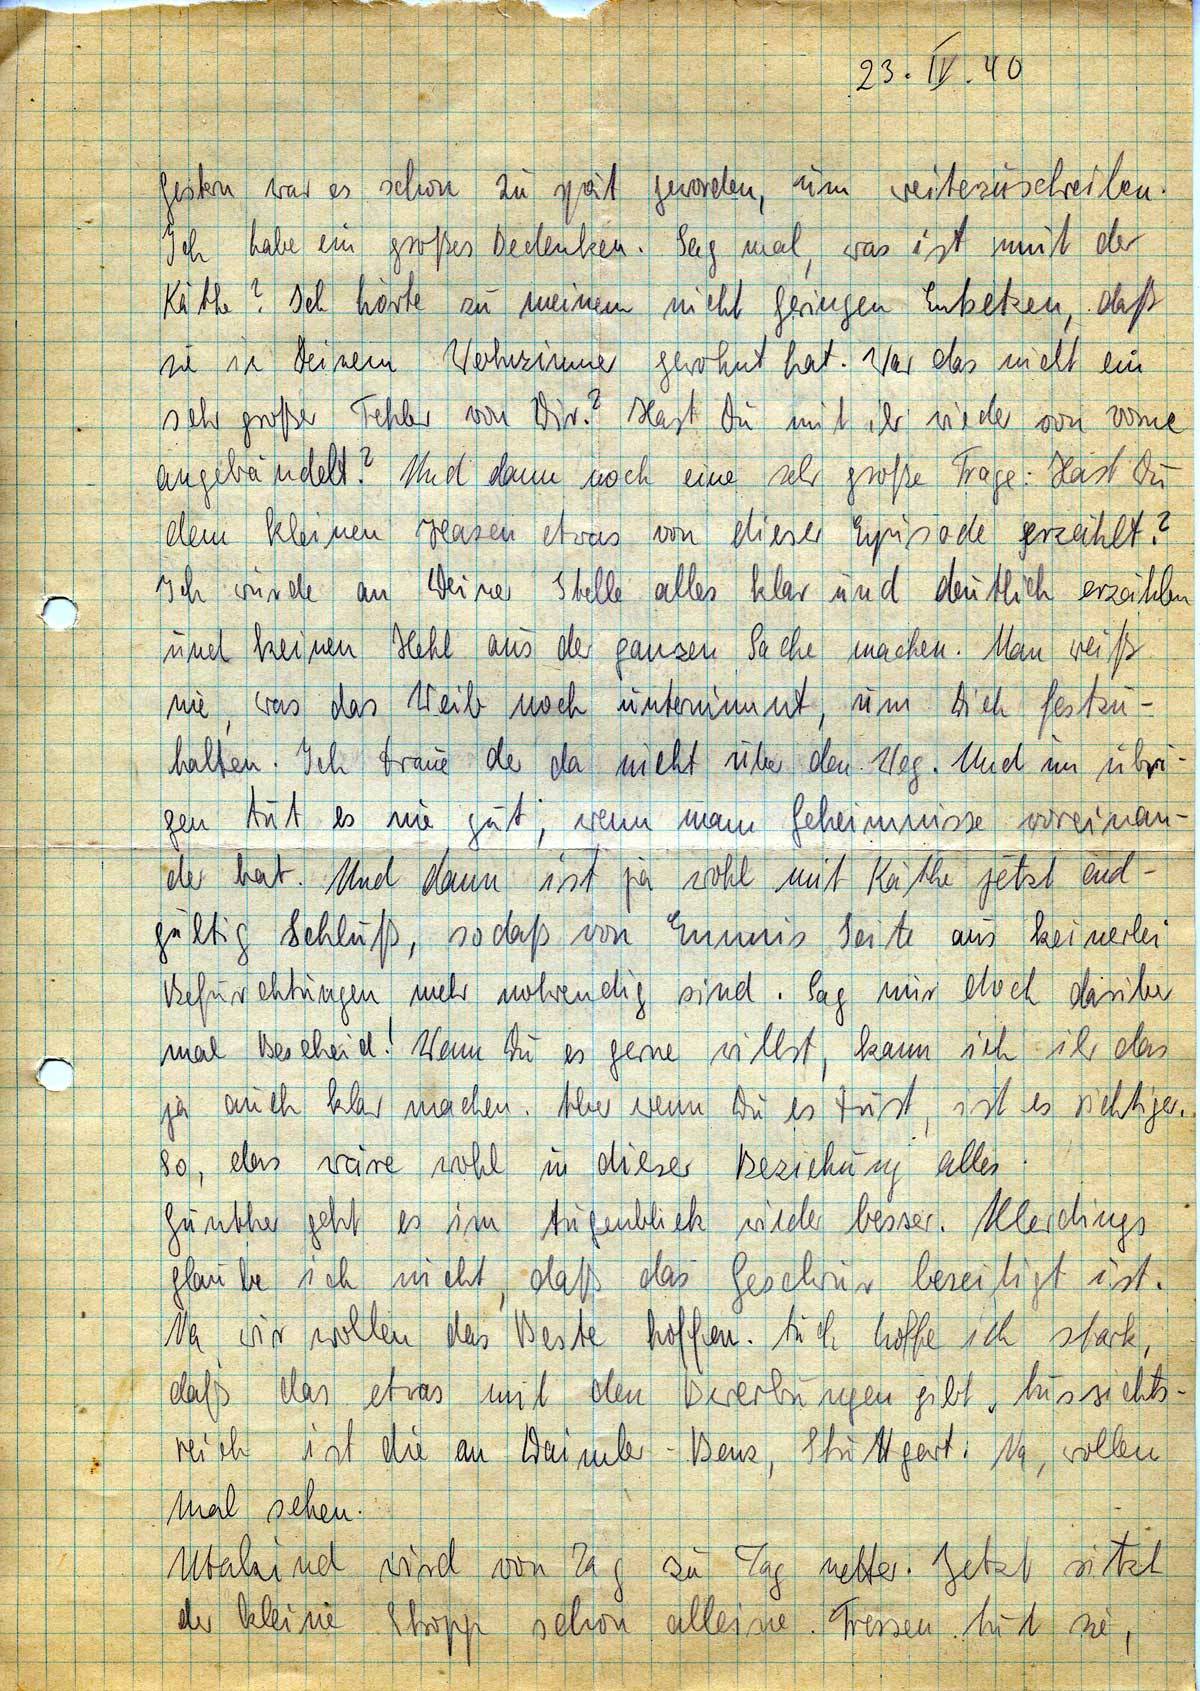 23. IV. 40
Gestern war es schon zu spät geworden, um weiterzuschreiben.
Ich habe ein großes Bedenken. Sag mal, was ist mit der
Käthe? Ich hörte zu meinem nicht geringen Entsetzen, daß
sie in Deinem Wohnzimmer gewohnt hat. War das nicht ein
sehr großer Fehler von Dir? Hast Du mit ihr wieder von vorne
angebändelt? Und dann noch eine sehr große Frage: Hast Du
dem kleinen Hasen etwas von dieser Episode erzählt?
Ich würde an Deiner Stelle alles klar und deutlich erzählen
und keinen Hehl aus der ganzen Sache machen. Man weiß
nie, was das Weib noch unternimmt, um Dich festzu-
halten. Ich traue der da nicht über den Weg. Und im übri-
gen tut es nie gut, wenn man Geheimnisse voreinan-
der hat. Und dann ist ja wohl mit Käthe jetzt end-
gültig Schluß, sodaß von Emmis Seite aus keinerlei
Befürchtungen mehr notwendig sind. Sag mir doch darüber
mal Bescheid! Wenn Du es gerne willst, kann ich ihr das
ja auch klar machen. Aber wenn Du es tust, ist es richtiger.
So, das wäre wohl in dieser Beziehung alles.
Günther geht es im Augenblick wieder besser. Allerdings
glaube ich nicht, daß das Geschwür beseitigt ist.
Na wir wollen das Beste hoffen. Auch hoffe ich stark,
daß das etwas mit den Bewerbungen gibt. Aussichts-
reich ist die an Daimler-Benz, Stuttgart. Na, wollen
mal sehen.
Utakind wird von Tag zu Tag netter. Jetzt sitzt
der kleine schon alleine. Fressen tut sie,